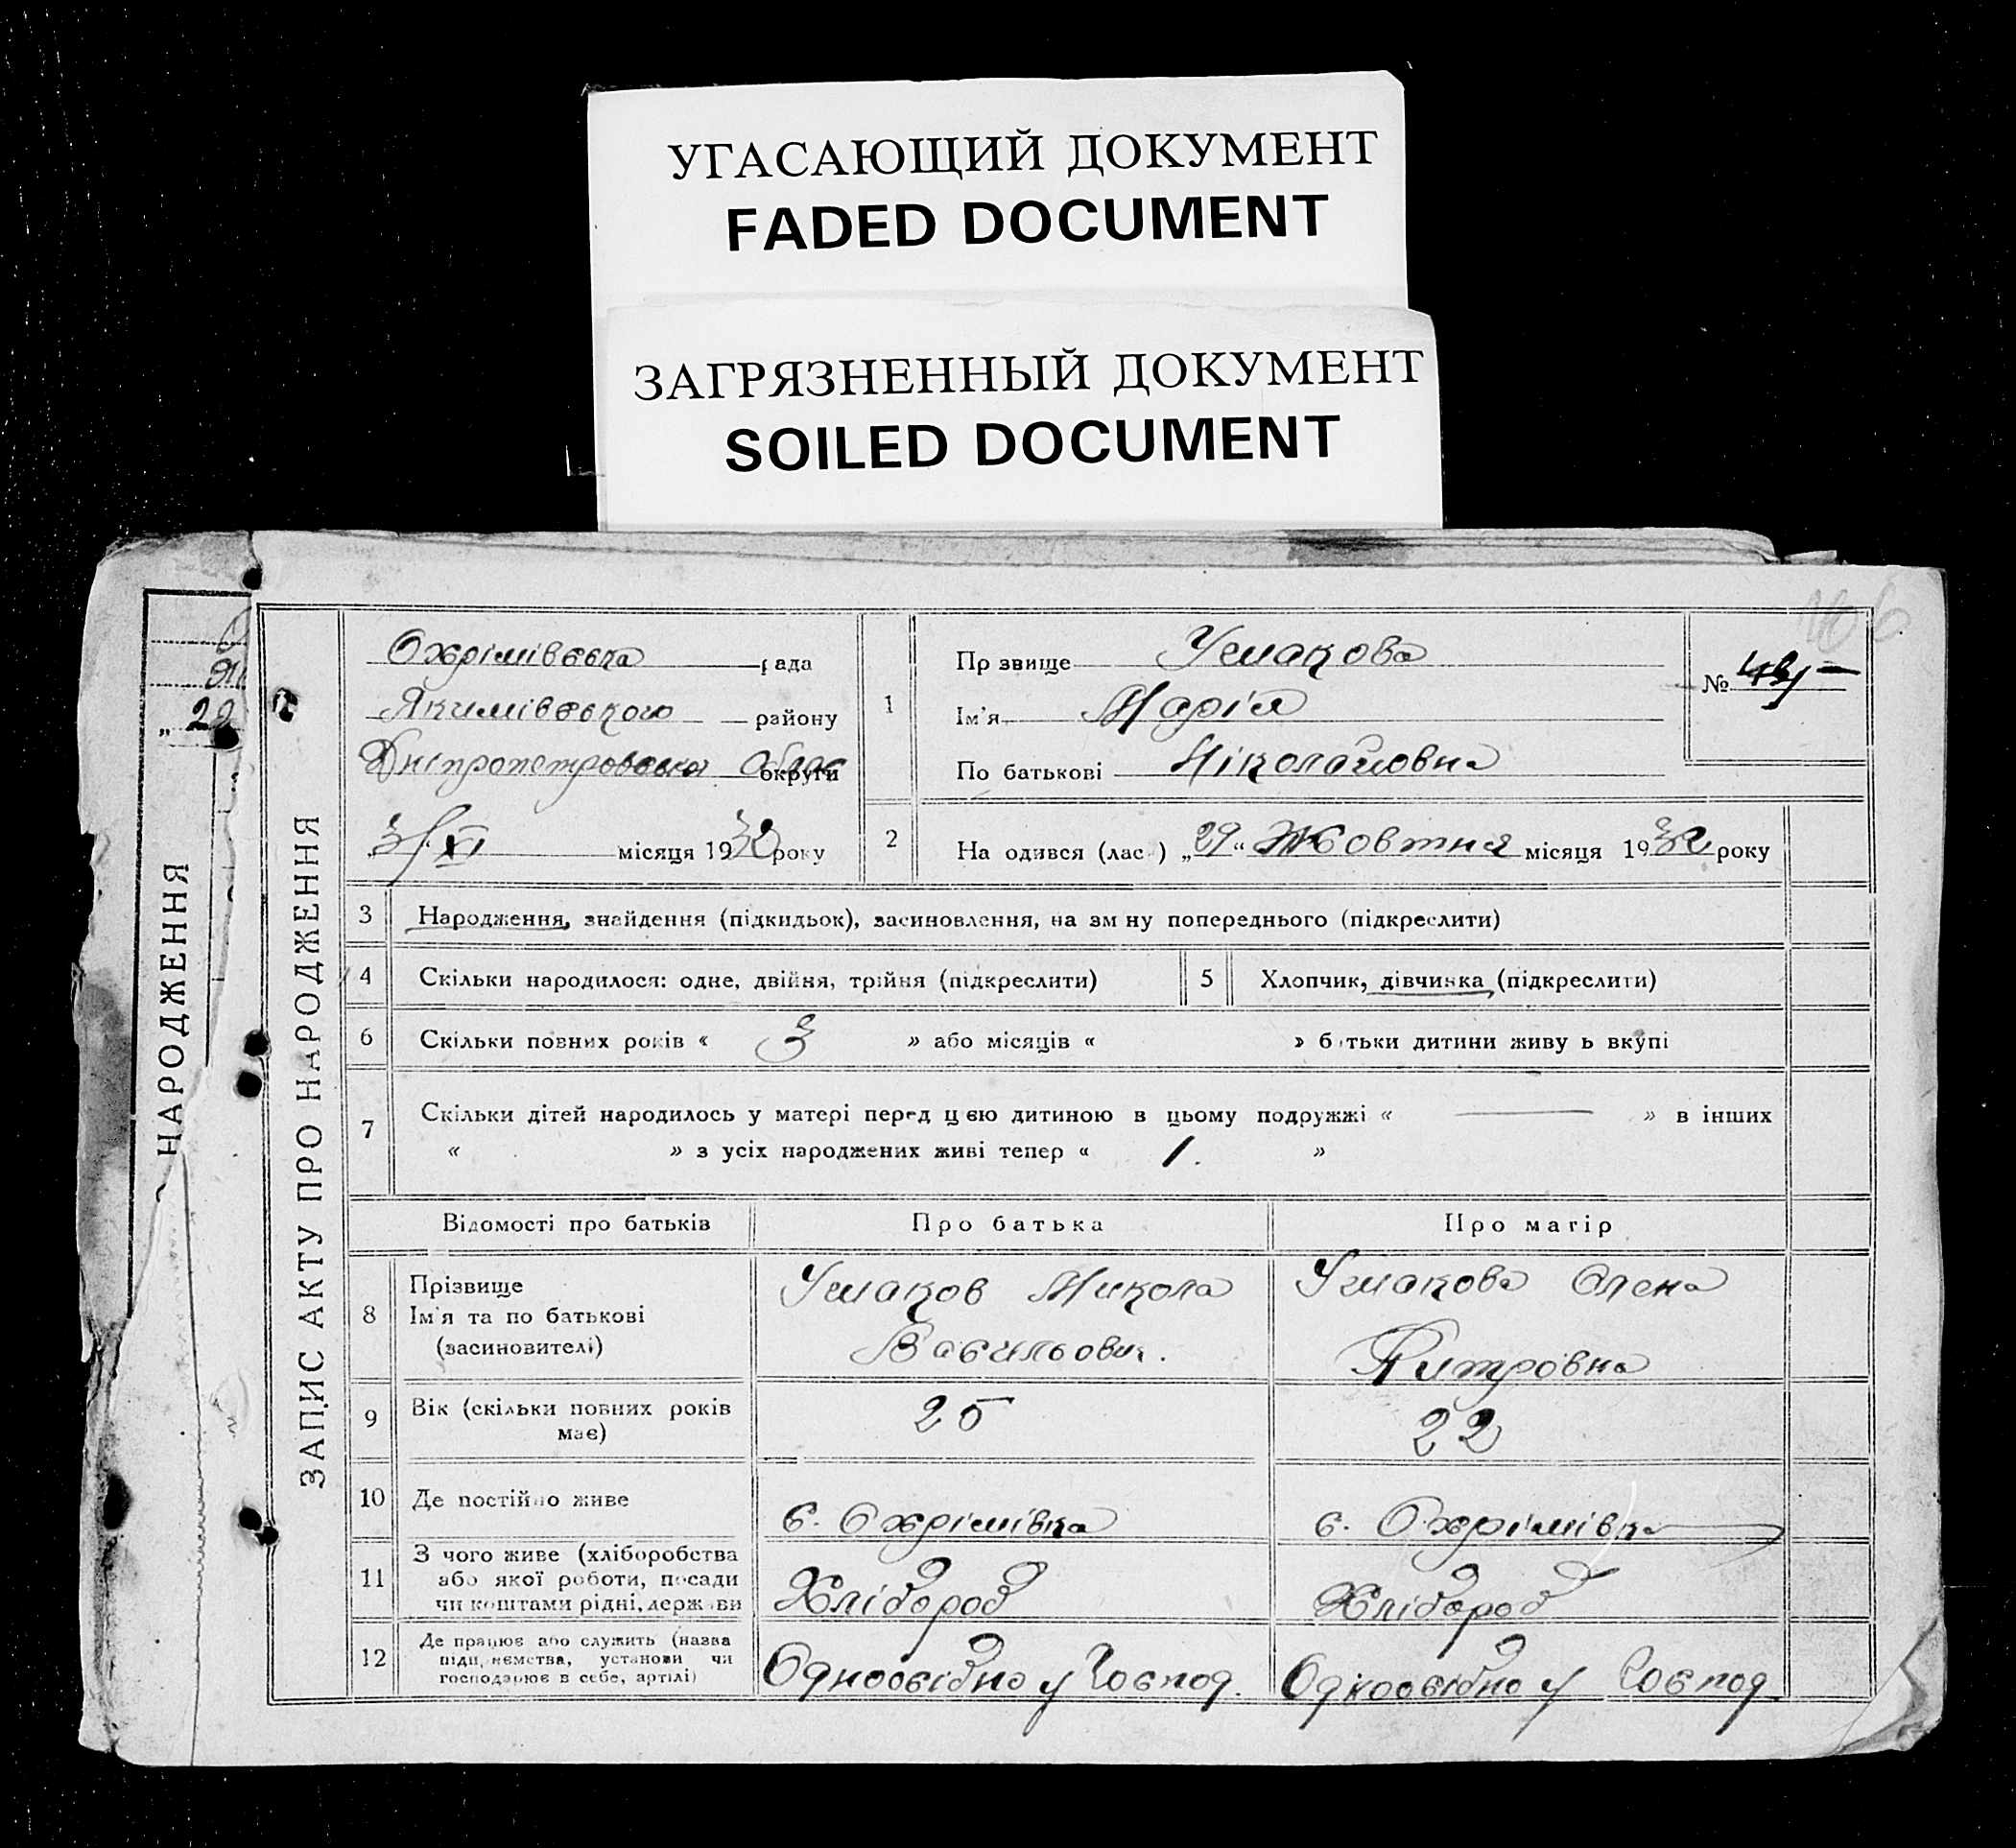 УГАСАЮЩИЙ ДОКУМЕНТ
FADED DOCUMENT
ЗАГРЯЗНЕННЫЙ ДОКУМЕНТ
SOILED DOCUMENT
НАРОДЖЕННЯ
ЗАПИС АКТУ ПРО НАРОДЖЕННЯ
Охрімівська рада
Якимівського району
Дніпропетровська Облас округи
3/XI місяця 1932 року
1 Пр звище Ушакова
Ім'я Марія
По батькові Ніколайовна
№
2 На одився (лас ) „29“ Жовтня місяця 1932 року
3 Народження, знайдення (підкидьок), засиновлення, на зм ну попереднього (підкреслити)
4 Скільки народилося: одне, двійня, трійня (підкреслити) 5 Хлопчик, дівчинка (підкреслити)
6 Скільки повних років « 3 » або місяців « » б тьки дитини живу ь вкупі
7 Скільки дітей народилось у матері перед цею дитиною в цьому подружжі « — » в інших
« » з усіх народжених живі тепер « 1. »
Відомості про батьків Про батька Про матір
8 Прізвище
Ім'я та по батькові
(засиновителі)
Ушаков Микола
Васильович.
Ушакова Олена
Дмитровна
9 Вік (скільки повних років
має)
25 22
10 Де постійно живе с. Охрімівка с. Охрімівка
11 З чого живе (хліборобства
або якої роботи, посади
чи коштами рідні, держави
Хлібороб Хлібороб
12 Де працює або служить (назва
підприємства, установи чи
господарює в себе, артілі)
Одноосібно у Господ. Одноосібно у Господ.